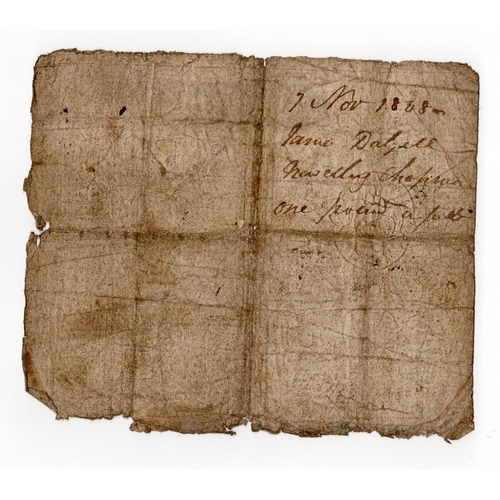 7 Nov 1808 -
James Dalzell
Travelling Chapman
one pound a piece